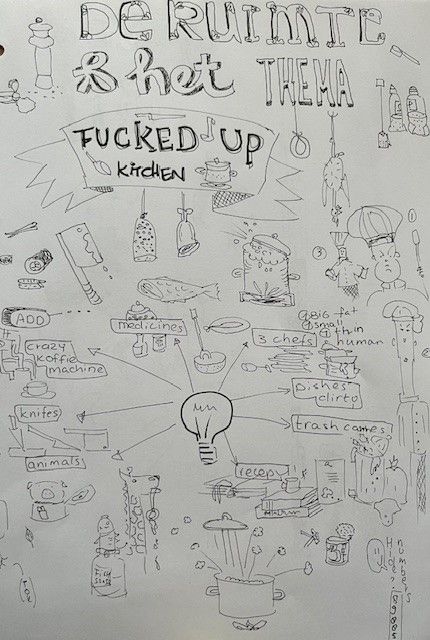 DE RUIMTE
& het THEMA
FUCKED UP
KITCHEN
ADD
medicines
crazy
koffie
machine
3 chefs
BIG fat
small
thin
human
dishes
dirty
knifes
trash cashes
animals
recep
FISH
numbers
Hide?